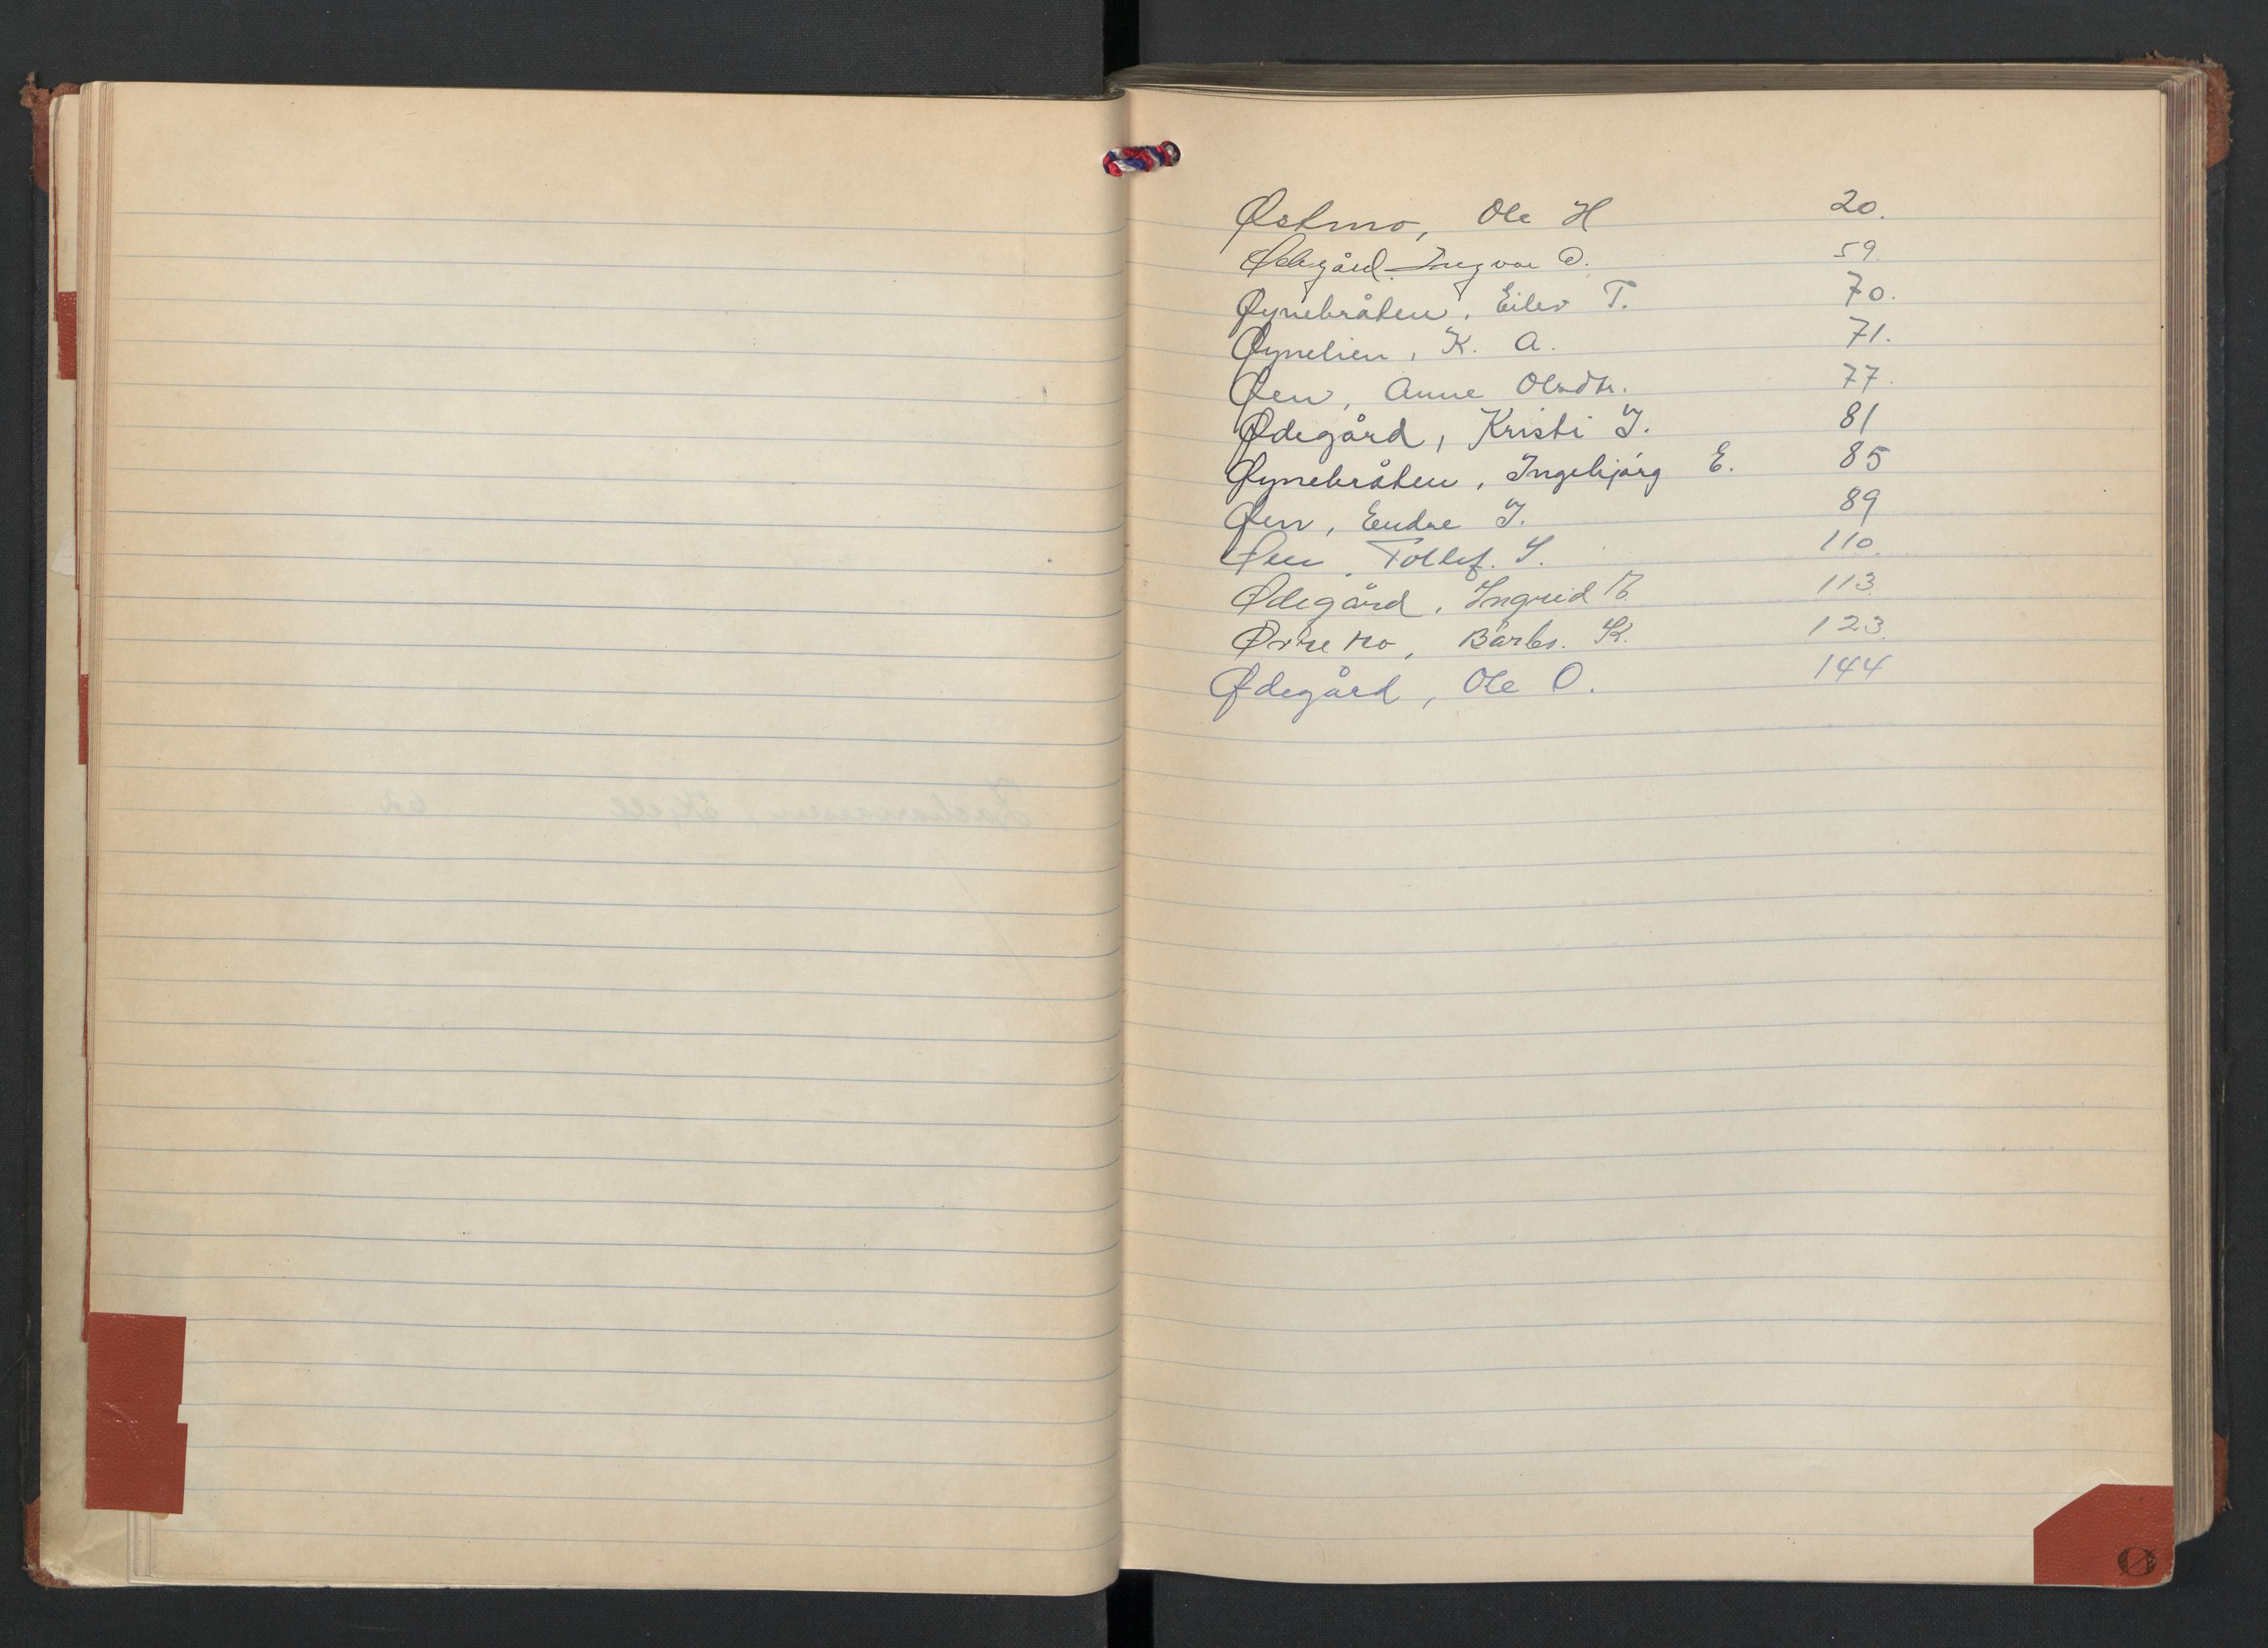 Østmo, Ole H 20.
Ødegård. Ingvar O. 59.
Øynebråten, Eilev T. 70.
Øynelien, K. A. 71.
Øen, Anne Olsdtr. 77.
Ødegård, Kristi I. 81
Øynebråten, Ingebjørg E. 85
Øen, Endre I. 89
Øen, Tollef. S. 110.
Ødegård, Ingrid 113.
Øvre Mo, Barbo. K. 123.
Ødegård, Ole O. 144
Ø